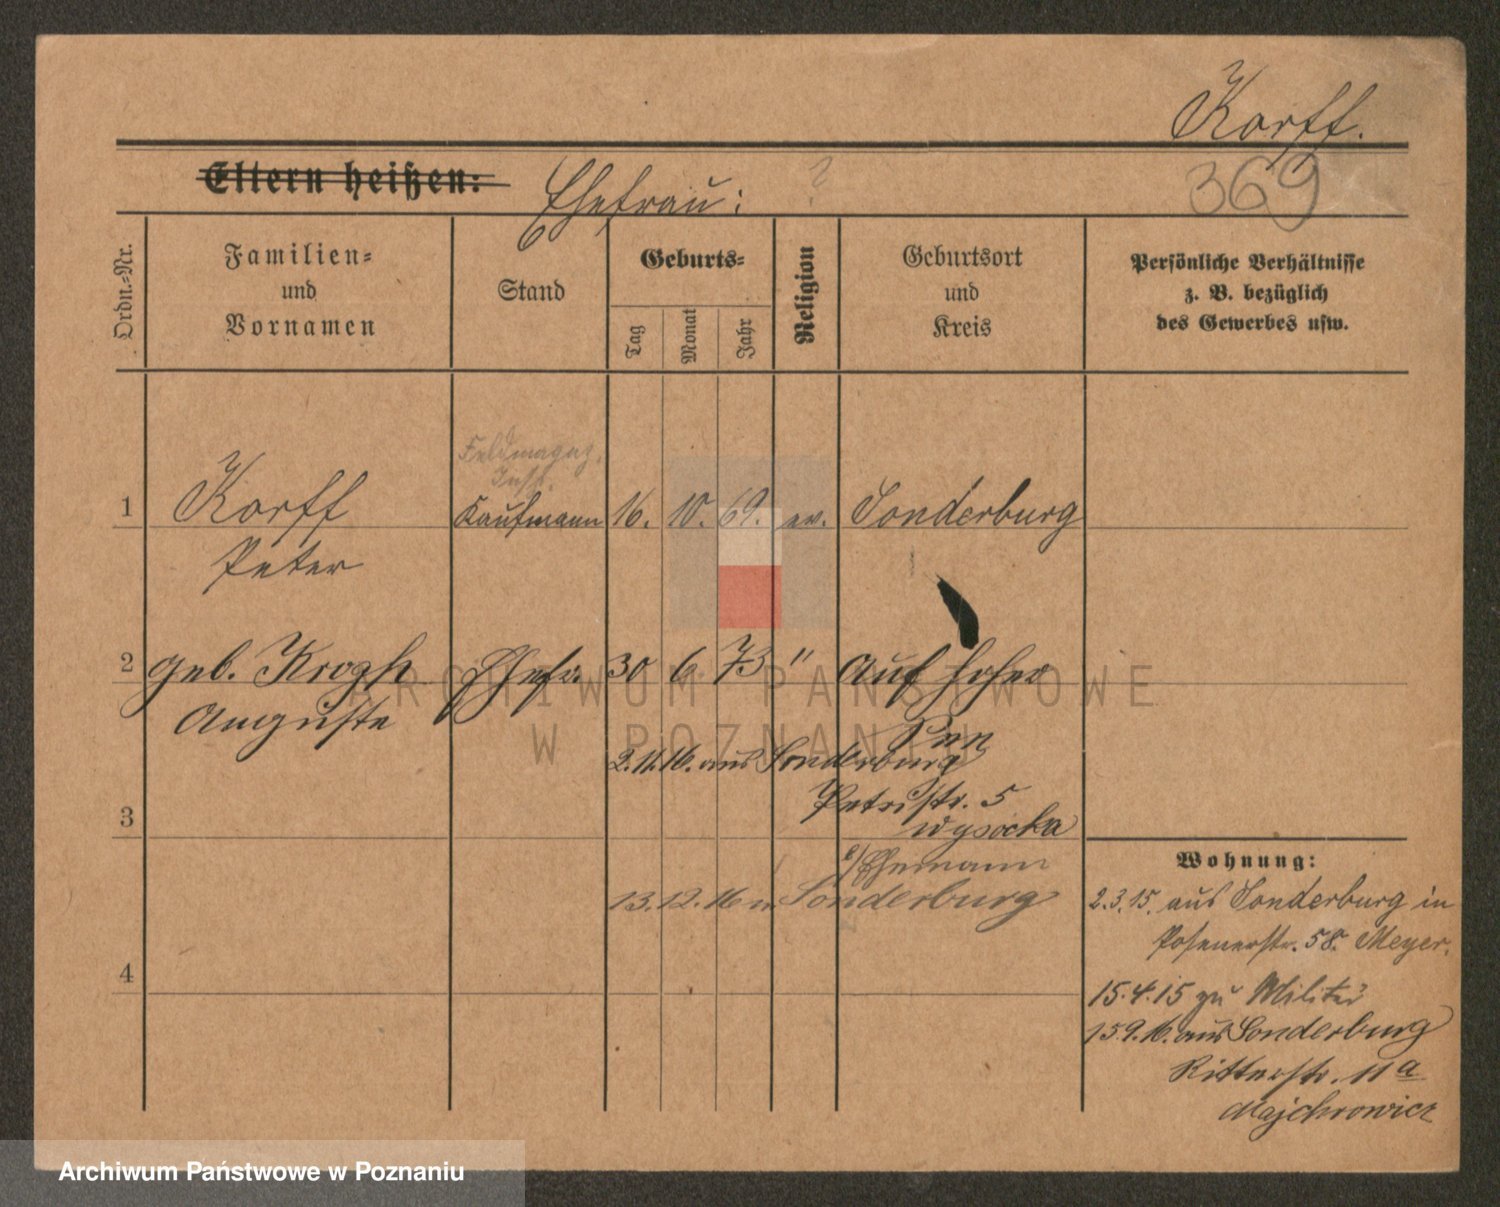 Korff.
369
Eltern heißen: Ehefrau: ?
Ordn.-Nr.
Familien-
und
Vornamen
Stand
Geburts-
Tag
Monat
Jahr
Religion
Geburtsort
und
Kreis
Persönliche Verhältnisse
z. B. bezüglich
des Gewerbes usw.
Feldmagaz.
Insp.
1 Korff Kaufmann 16. 10. 69. ev. Sonderburg
Peter
2 geb. Krogh Ehefr. 30 6. 73 " Auf hoher
Auguste
2.11.16. aus Sonderburg
Petristr. 5
Wysocka
3
Ehemann
13.12.16 n. Sonderburg
4
Wohnung:
2.3.15. aus Sonderburg in
Posenerstr. 58. Meyer.
15.4.15 zu Militär
15.9.16. aus Sonderburg
Ritterstr. 11a
Majchrowicz
ARCHIWUM PAŃSTWOWE
W POZNANIU
Archiwum Państwowe w Poznaniu